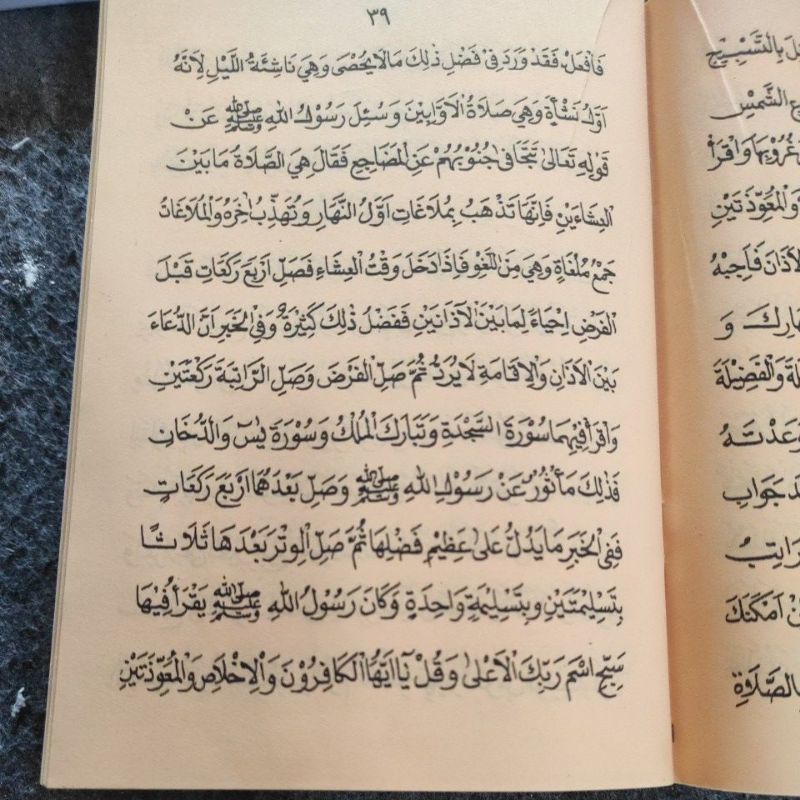 ٣٩
فَافْعَلْ فَقَدْ وَرَدَ فِىْ فَضْلِ ذٰلِكَ مَالَا يُحْصَى وَهِيَ نَاشِئَةُ اللَّيْلِ لِاَنَّهُ
اَوَّلُ نَشْأَةٍ وَهِيَ صَلَاةُ الْاَوَّابِيْنَ وَسُئِلَ رَسُوْلُ اللهِ ﷺ عَنْ
قَوْلِهِ تَعَالٰى تَتَجَافٰى جُنُوْبُهُمْ عَنِ الْمَضَاجِعِ فَقَالَ هِيَ الصَّلَاةُ مَا بَيْنَ
الْعِشَاءَيْنِ فَاِنَّهَا تَذْهَبُ بِمُلَاغَاتِ اَوَّلِ النَّهَارِ وَتُهَذِّبُ اٰخِرَهُ وَالْمُلَاغَاتُ
جَمْعُ مُلْغَاةٍ وَهِيَ مِنَ اللَّغْوِ فَاِذَا دَخَلَ وَقْتُ الْعِشَاءِ فَصَلِّ اَرْبَعَ رَكَعَاتٍ قَبْلَ
الْفَرْضِ اِحْيَاءً لِمَا بَيْنَ الْاَذَانَيْنِ فَفَضْلُ ذٰلِكَ كَثِيْرَةٌ وَفِى الْخَبَرِ اَنَّ الدُّعَاءَ
بَيْنَ الْاَذَانِ وَالْاِقَامَةِ لَا يُرَدُّ ثُمَّ صَلِّ الْفَرْضَ وَصَلِّ الرَّاتِبَةَ رَكْعَتَيْنِ
وَاقْرَأْ فِيْهِمَا سُوْرَةَ السَّجْدَةِ وَتَبَارَكَ الْمُلْكُ وَسُوْرَةَ يٰسٓ وَالدُّخَانَ
فَذٰلِكَ مَأْثُوْرٌ عَنْ رَسُوْلِ اللهِ ﷺ وَصَلِّ بَعْدَهُمَا اَرْبَعَ رَكَعَاتٍ
فَفِى الْخَبَرِ مَا يَدُلُّ عَلٰى عَظِيْمِ فَضْلِهَا ثُمَّ صَلِّ الْوِتْرَ بَعْدَهَا ثَلَاثًا
بِتَسْلِيْمَتَيْنِ وَبِتَسْلِيْمَةٍ وَاحِدَةٍ وَكَانَ رَسُوْلُ اللهِ ﷺ يَقْرَأُ فِيْهَا
سَبِّحِ اسْمَ رَبِّكَ الْاَعْلٰى وَقُلْ يَا اَيُّهَا الْكَافِرُوْنَ وَالْاِخْلَاصِ وَالْمُعَوِّذَتَيْنِ
بِالتَّسْبِيْحِ
الشَّمْسِ
غُرُوْبِهَا وَاقْرَأْ
وَالْمُعَوِّذَتَيْنِ
الْاَذَانَ فَاَجِبْهُ
وَ
وَالْفَضِيْلَةَ
وَعَدْتَهُ
جَوَابِ
اَمْكَنَكَ
بِالصَّلَاةِ